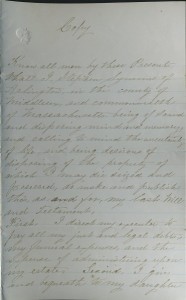 Copy.
Know all men by these Presents
that I, Symmes of
Arlington in the county of
Middlesex and commonwealth
of Massachusetts being of sound
and disposing mind and memory,
and calling to mind the uncertainty
of life and being desirous of
disposing of the property of
which I may die seized and
possessed, do make and publish
this as and for my last Will
and Testament.
First. I direct my executor to
pay all my just and legal debts
my funeral expenses, and the
expense of administering upon
my estate. Second. I give
and bequeath to my daughter